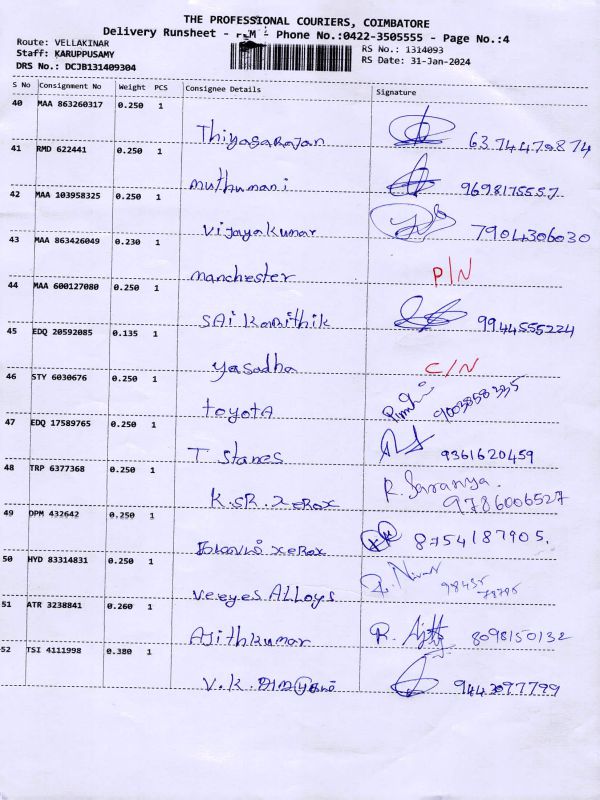 THE PROFESSIONAL COURIERS, COIMBATORE
Delivery Runsheet - - Phone No.:0422-3505555 - Page No.:4
Route: VELLAKINAR RS No.: 1314093
Staff: KARUPPUSAMY RS Date: 31-Jan-2024
DRS No.: DCJB131409304
S No Consignment No Weight PCS Consignee Details Signature
40 MAA 863260317 0.250 1
Thiyagarajan 6374479874
41 RMD 622441 0.250 1
muthumani 9698175557
42 MAA 103958325 0.250 1
Vijayakumar 7904306030
43 MAA 863426049 0.230 1
manchester P/N
44 MAA 600127080 0.250 1
SAi Kamithik 9944555224
45 EDQ 20592085 0.135 1
yasadha C/N
46 STY 6030676 0.250 1
toyotA 9003858335
47 EDQ 17589765 0.250 1
T. Stanes 9361620459
48 TRP 6377368 0.250 1
K.SR. XeRox R. Saranya. 9786006527
49 DPM 432642 0.250 1
XeRox 8754187905.
50 HYD 83314831 0.250 1
veeyes ALLoys
51 ATR 3238841 0.260 1
AJithkumar R. Ajith 8098150132
52 TSI 4111998 0.380 1
V.K. 9443097799